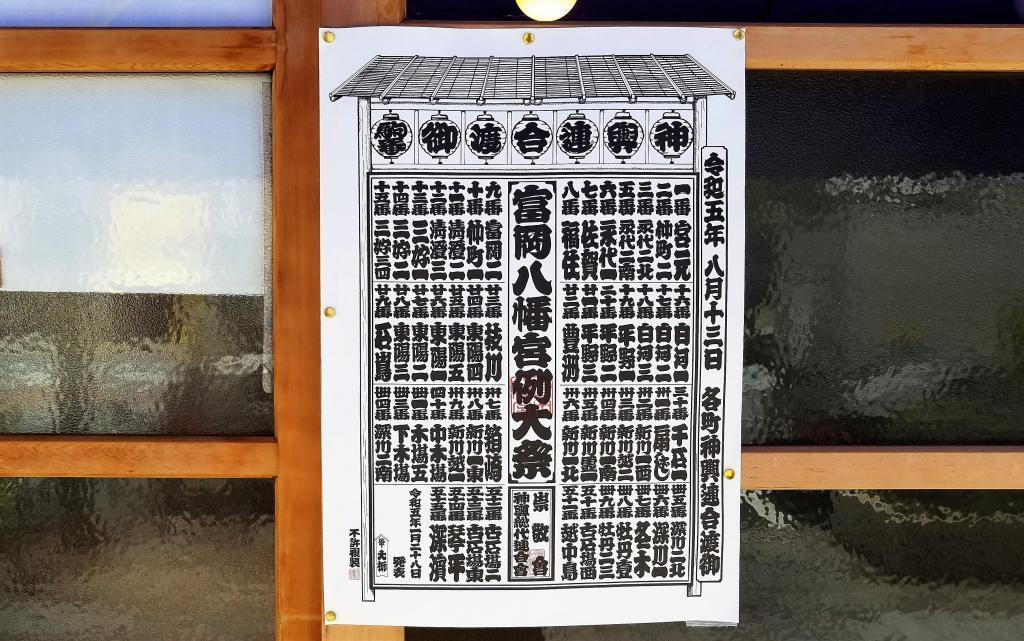 神輿連合渡御駒番
令和五年 八月十三日 各町神輿連合渡御
一番 宮元
二番 仲町二
三番 永代二北
五番 永代二南
六番 永代一
七番 佐賀
八番 福住
富岡八幡宮例大祭
九番 富岡二
十番 仲町一
十一番 清澄二
十二番 清澄三
十三番 三好一
十四番 三好二
十五番 三好三四
十六番 白河一
十七番 白河二
十八番 白河三
十九番 平野一
二十番 平野二
廿一番 平野三
廿二番 豊洲
廿三番 枝川
廿四番 東陽四
廿五番 東陽五
廿六番 東陽一
廿七番 東陽二
廿八番 東陽三
廿九番 石島
三十番 千石
卅一番 扇ばし
卅二番 新川一西
卅三番 新川越一
卅四番 新川一南
卅五番 新川
卅六番 新川一北
卅七番 箱崎
卅八番 新川一東
卅九番 新川越二
四十番 中木場
卌一番 木場五
卌三番 下木場
卌四番 深川二南
卌五番 深川二北
卌六番 深川一
卌七番 冬木
卌八番 牡丹壹
卌九番 牡丹二三
五十番 古石場西
五十一番 越中島
崇敬會
神輿総代連合會
五十二番 古石場二
五十三番 古石場東
五十四番 琴平
五十五番 深濱
令和五年一月二十八日 発表
不許複製